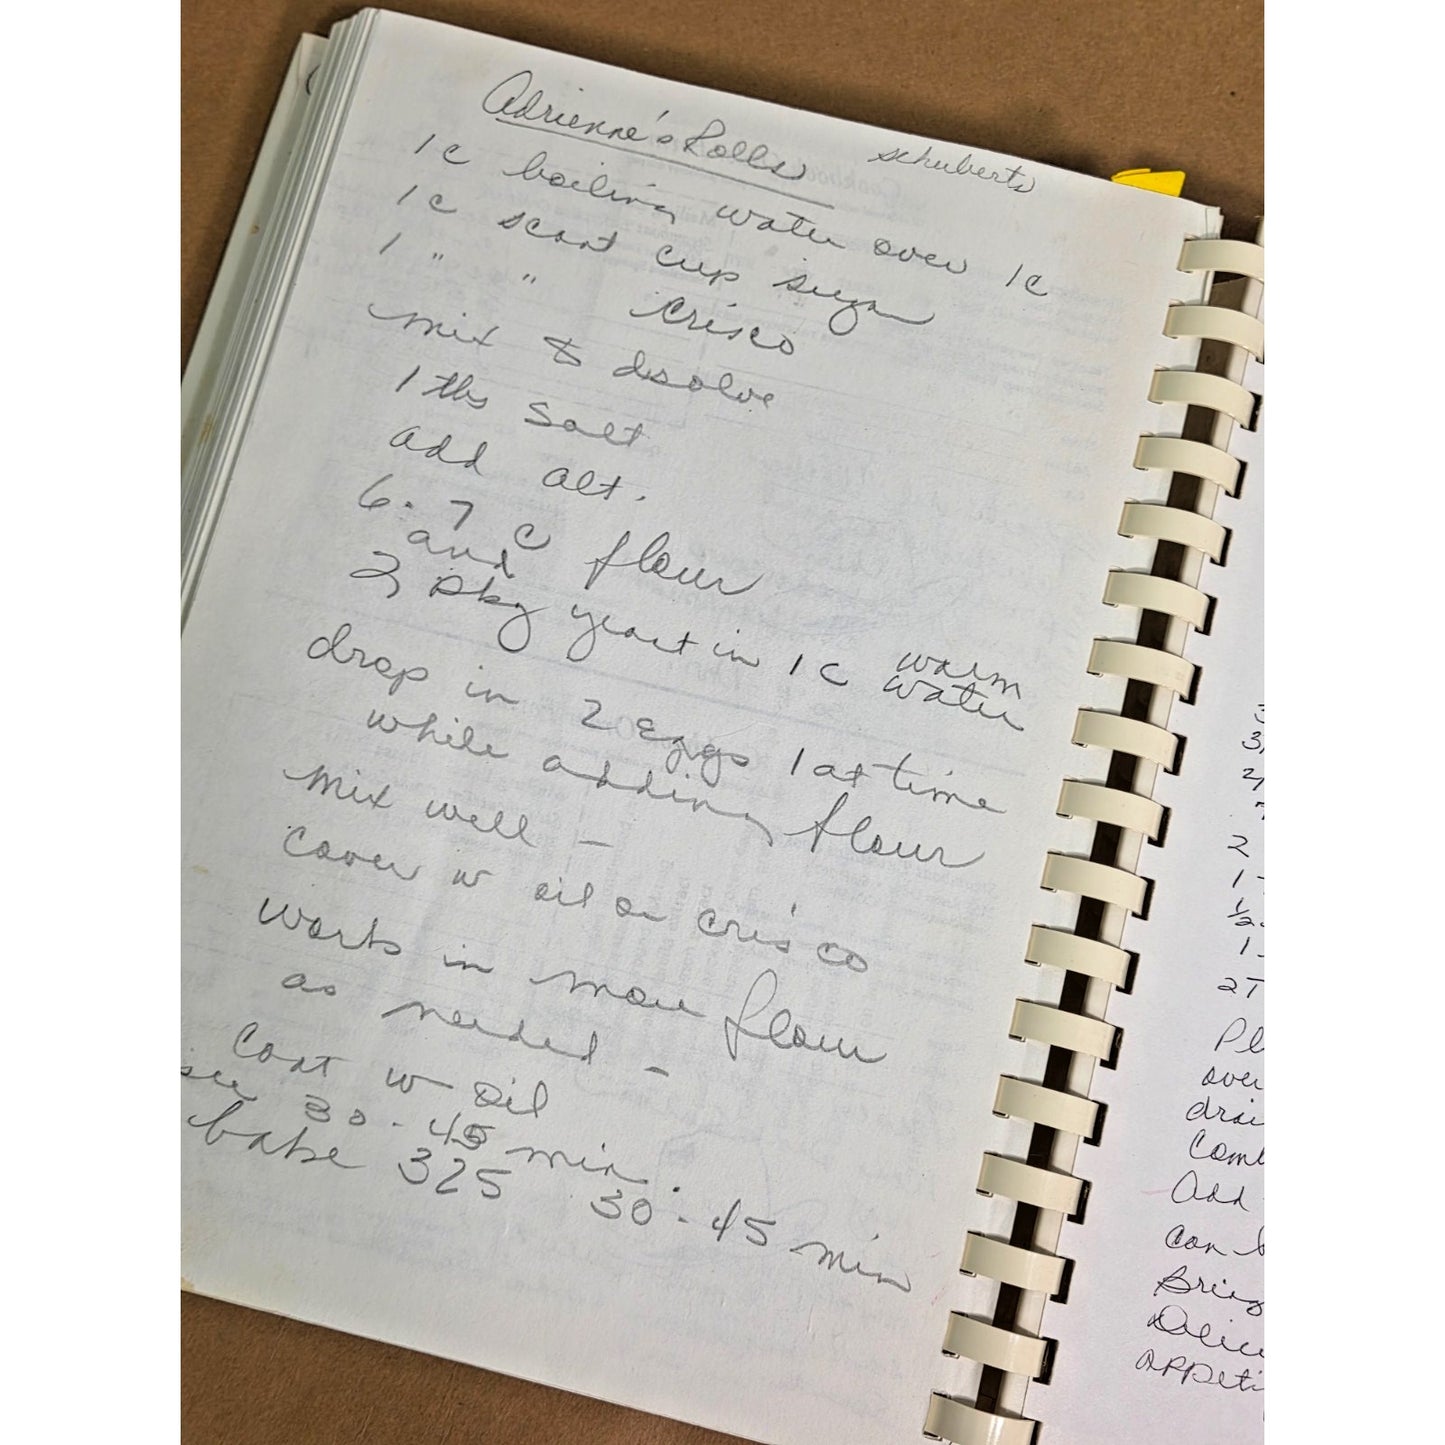 Adrienne's Rolls schuberts
1c boiling water over 1c
1c scant cup sugar
1 " " Crisco
mix & dsolve
1 tbs salt
add alt.
6-7 c flour
and
2 pkg yeast in 1c warm water
drop in 2 Eggs 1 at time
while adding flour
mix well -
Cover w oil or crisco
work in more flour
as needed -
Coat w oil
30-45 min.
bake 325 30-45 min
3
3/
2/
7
2
1
1/2
1
2T
Pl
over
drai
Comb
Add
can b
Bring
Delic
appeti